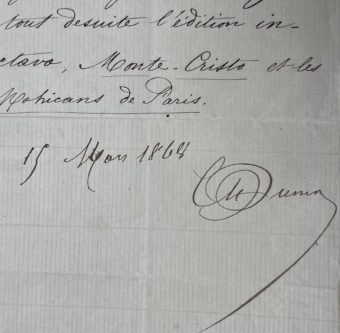 tout desuite l'édition in-
ctavo, Monte-Cristo et les
Mohicans de Paris.
15 Mars 1868